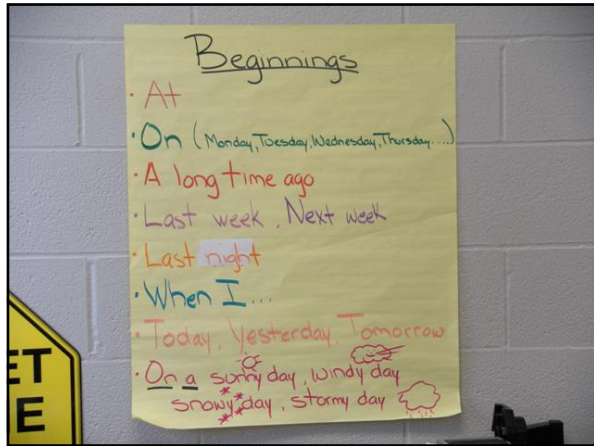 Beginnings
· At
· On (Monday, Tuesday, Wednesday, Thursday....)
· A long time ago
· Last week, Next week
· Last night
· When I...
· Today, Yesterday, Tomorrow
· On a sunny day, windy day
snowy day, stormy day
ET
E